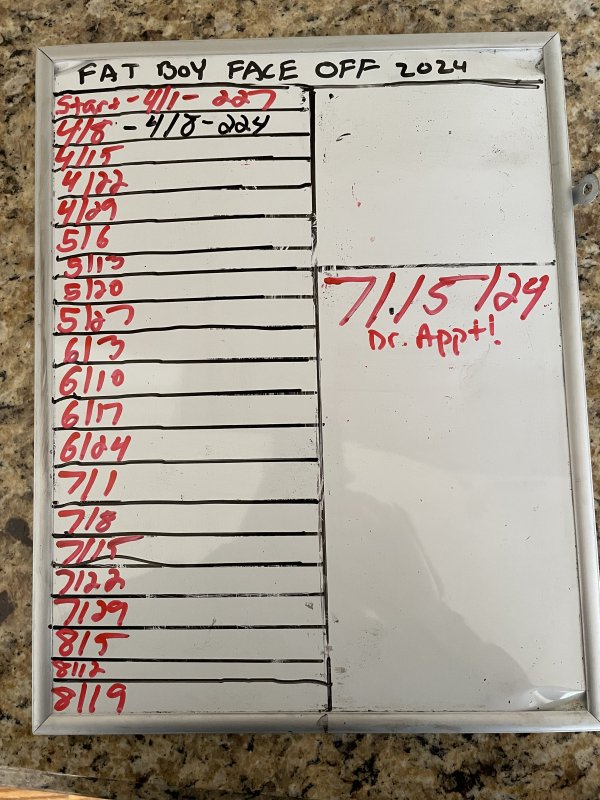 FAT BOY FACE OFF 2024
Start - 4/1 - 227
4/8 - 4/8 - 224
4/15
4/22
4/29
5/6
5/13
5/20
5/27
6/3
6/10
6/17
6/24
7/1
7/8
7/15
7/22
7/29
8/5
8/12
8/19
7/15/24
Dr. Appt!